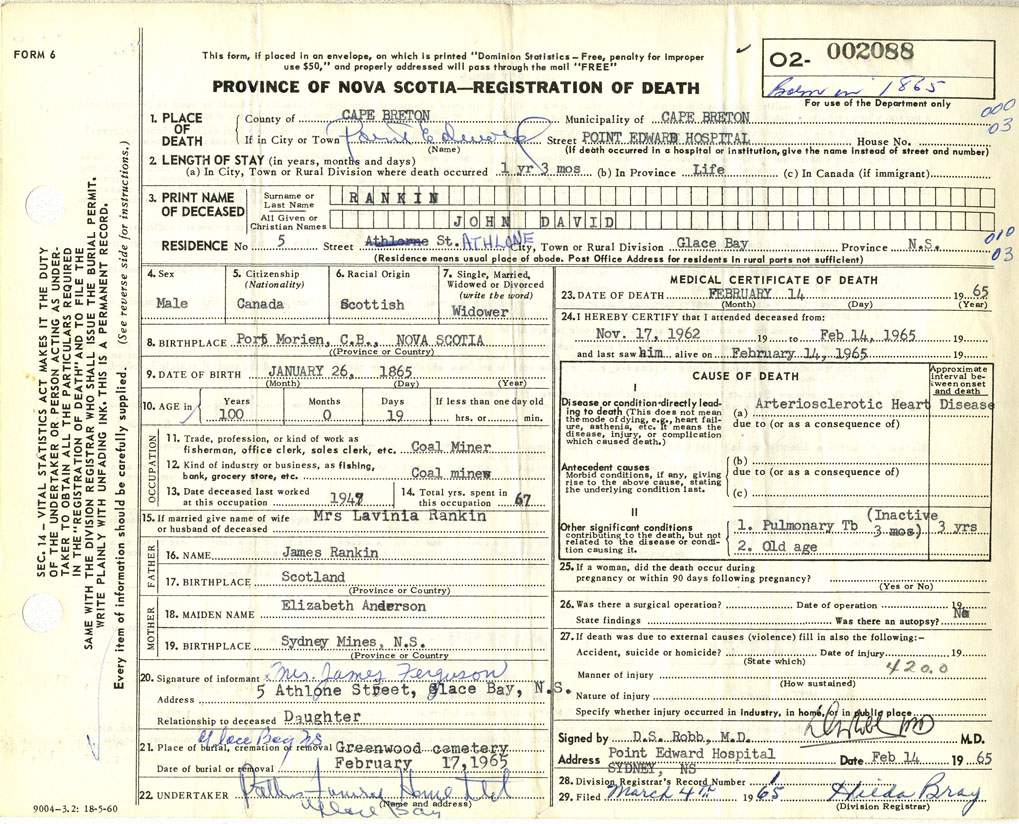 FORM 6
This form, if placed in an envelope, on which is printed "Dominion Statistics – Free, penalty for improper
use $50," and properly addressed will pass through the mail "FREE"
PROVINCE OF NOVA SCOTIA—REGISTRATION OF DEATH
O2- 002088
Born in 1865
For use of the Department only
1. PLACE OF DEATH
County of CAPE BRETON Municipality of CAPE BRETON
000
03
If in City or Town Point Edward Street POINT EDWARD HOSPITAL House No.
(Name) (If death occurred in a hospital or institution, give the name instead of street and number)
2. LENGTH OF STAY (in years, months and days)
(a) In City, Town or Rural Division where death occurred 1 yr 3 mos (b) In Province Life (c) In Canada (if immigrant)
3. PRINT NAME OF DECEASED
Surname or Last Name RANKIN
All Given or Christian Names JOHN DAVID
RESIDENCE No 5 Street Athlorne St. ATHLONE City, Town or Rural Division Glace Bay Province N.S.
010
03
(Residence means usual place of abode. Post Office Address for residents in rural parts not sufficient)
4. Sex
Male
5. Citizenship
(Nationality)
Canada
6. Racial Origin
Scottish
7. Single, Married,
Widowed or Divorced
(write the word)
Widower
8. BIRTHPLACE Port Morien, C.B., NOVA SCOTIA
(Province or Country)
9. DATE OF BIRTH JANUARY 26, 1865
(Month) (Day) (Year)
10. AGE in
Years Months Days If less than one day old
100 0 19 hrs. or min.
OCCUPATION
11. Trade, profession, or kind of work as
fisherman, office clerk, sales clerk, etc. Coal Miner
12. Kind of industry or business, as fishing,
bank, grocery store, etc. Coal mines
13. Date deceased last worked
at this occupation 1947
14. Total yrs. spent in
this occupation 67
15. If married give name of wife
or husband of deceased Mrs Lavinia Rankin
FATHER
16. NAME James Rankin
17. BIRTHPLACE Scotland
(Province or Country)
MOTHER
18. MAIDEN NAME Elizabeth Anderson
19. BIRTHPLACE Sydney Mines, N.S.
(Province or Country
20. Signature of informant Mrs. James Ferguson
Address 5 Athlone Street, Glace Bay, N.S.
Relationship to deceased Daughter
Glace Bay NS
21. Place of burial, cremation or removal Greenwood cemetery
Date of burial or removal February 17, 1965
22. UNDERTAKER Funeral Home Ltd
(Name and address)
Glace Bay
9004-3.2: 18-5-60
MEDICAL CERTIFICATE OF DEATH
23. DATE OF DEATH FEBRUARY 14 19 65
(Month) (Day) (Year)
24. I HEREBY CERTIFY that I attended deceased from:
Nov. 17, 1962 19 to Feb 14, 1965
and last saw him alive on February 14, 1965 19
CAUSE OF DEATH
Approximate interval between onset and death
I
Disease or condition directly leading to death (This does not
mean the mode of dying, e.g., heart failure, asthenia, etc. It means the
disease, injury, or complication
which caused death.)
(a) Arteriosclerotic Heart Disease
due to (or as a consequence of)
Antecedent causes
Morbid conditions, if any, giving
rise to the above cause, stating
the underlying condition last.
(b)
due to (or as a consequence of)
(c)
II
Other significant conditions
contributing to the death, but not
related to the disease or condition causing it.
1. Pulmonary Tb (Inactive 3 mos) 3 yrs
2. Old age
25. If a woman, did the death occur during
pregnancy or within 90 days following pregnancy?
(Yes or No)
26. Was there a surgical operation? Date of operation 19
State findings Was there an autopsy? No
27. If death was due to external causes (violence) fill in also the following:–
Accident, suicide or homicide? Date of injury 19
(State which)
Manner of injury 420.0
(How sustained)
Nature of injury
Specify whether injury occurred in industry, in home, or in public place.
Signed by D.S. Robb, M.D. M.D.
Address Point Edward Hospital Date Feb 14 19 65
SYDNEY, NS
28. Division Registrar's Record Number 1
29. Filed March 4th 1965 Hilda Bray
(Division Registrar)
SEC. 14 – VITAL STATISTICS ACT MAKES IT THE DUTY
OF THE UNDERTAKER OR PERSON ACTING AS UNDER-
TAKER TO OBTAIN ALL THE PARTICULARS REQUIRED
IN THE "REGISTRATION OF DEATH" AND TO FILE THE
SAME WITH THE DIVISION REGISTRAR WHO SHALL ISSUE THE BURIAL PERMIT.
WRITE PLAINLY WITH UNFADING INK. THIS IS A PERMANENT RECORD.
Every item of information should be carefully supplied. (See reverse side for instructions.)